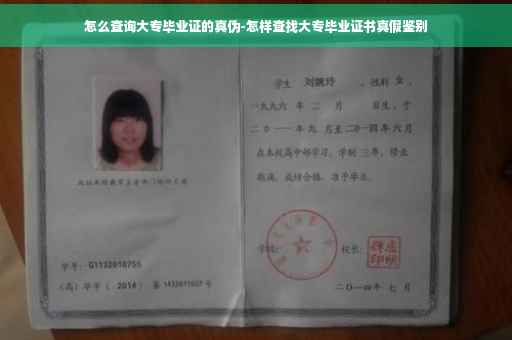 怎么查询大专毕业证的真伪-怎样查找大专毕业证书真假鉴别
学生 刘婉玲 ，性别 女 ，
一九九六 年 二 月 日生，于
二0一一年九 月至二0一四年六月
在本校高中部学习，学制 三年，修业
期满，成绩合格，准予毕业。
学校： 校长：
学号：G1132010755
（高）毕字（ 2014 ）第 1432011027 号
二〇一四年 七 月